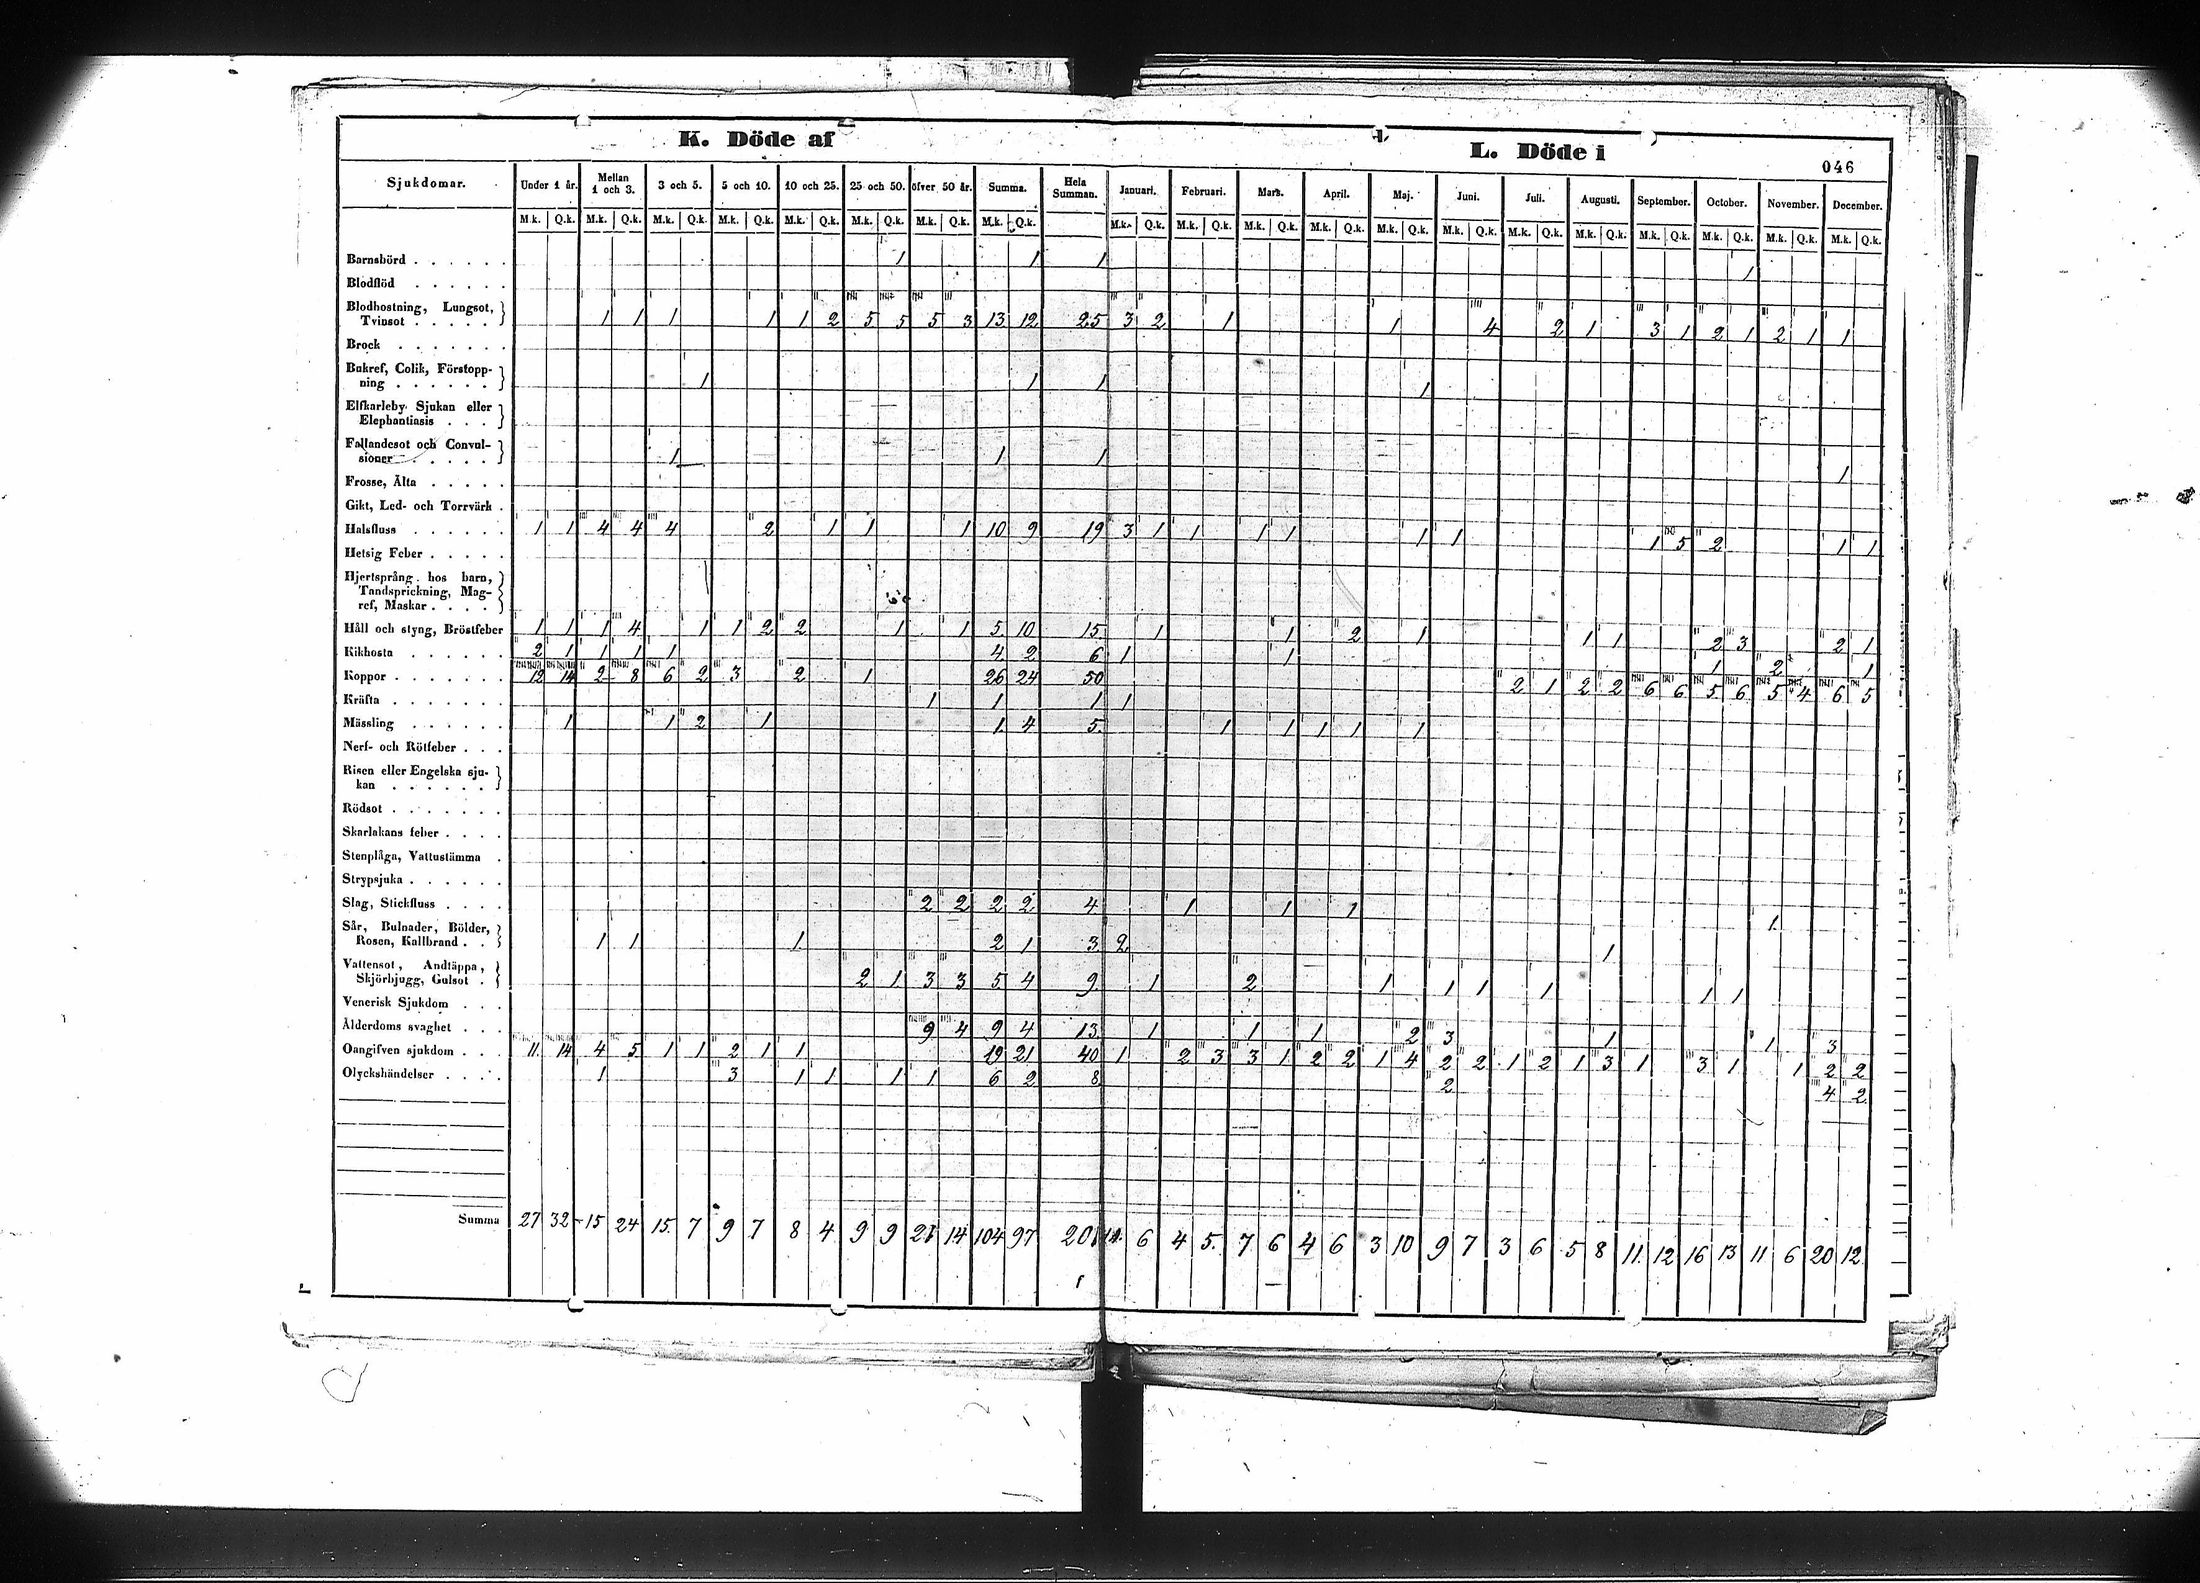 K. Döde af
L. Döde i
046
Sjukdomar. Under 1 år. Mellan 1 och 3. 3 och 5. 5 och 10. 10 och 25. 25 och 50. öfver 50 år. Summa. Hela Summan. Januari. Februari. Mars. April. Maj. Juni. Juli. Augusti. September. October. November. December.
M.k. Q.k. M.k. Q.k. M.k. Q.k. M.k. Q.k. M.k. Q.k. M.k. Q.k. M.k. Q.k. M.k. Q.k. M.k. Q.k. M.k. Q.k. M.k. Q.k. M.k. Q.k. M.k. Q.k. M.k. Q.k. M.k. Q.k. M.k. Q.k. M.k. Q.k. M.k. Q.k. M.k. Q.k. M.k. Q.k.
Barnsbörd . . . . . . 1 1 1 1
Blodflöd . . . . . .
Blodhostning, Lungsot,
Tvinsot . . . . . 1 1 1 1 1 2 5 5 5 3 13 12 25 3 2 1 1 4 2 1 3 1 2 1 2 1 1
Brock . . . . . . .
Bukref, Colik, Förstopp-
ning . . . . . . 1 1 1 1
Elfkarleby Sjukan eller
Elephantiasis . . .
Fallandesot och Convul-
sioner . . . . . 1 1 1 1
Frosse, Älta . . . . .
Gikt, Led- och Torrvärk .
Halsfluss . . . . . . 1 1 4 4 4 2 1 1 1 10 9 19 3 1 1 1 1 1 1 1 5 2 1 1
Hetsig Feber . . . . .
Hjertsprång hos barn,
Tandsprickning, Mag-
ref, Maskar . . . .
Håll och styng, Bröstfeber 1 1 1 4 1 1 2 2 1 1 5 10 15 1 1 2 1 1 1 2 3 2 1
Kikhosta . . . . . . 2 1 1 1 1 4 2 6 1 1 1 2 1
Koppor . . . . . . . 12 14 2 8 6 2 3 2 1 26 24 50 2 1 2 2 6 6 5 6 5 4 6 5
Kräfta . . . . . . . 1 1 1 1
Mässling . . . . . . 1 1 2 1 1 4 5 1 1 1 1 1
Nerf- och Rötfeber . . .
Risen eller Engelska sju-
kan . . . . . .
Rödsot . . . . . . .
Skarlakans feber . . . .
Stenplåga, Vattustämma .
Strypsjuka . . . . . .
Slag, Stickfluss . . . . 2 2 2 2 4 1 1 1 1
Sår, Bulnader, Bölder,
Rosen, Kallbrand . . 1 1 1 2 1 3 2 1
Vattensot, Andtäppa,
Skjörbjugg, Gulsot . 2 1 3 3 5 4 9 1 2 1 1 1 1 1 1
Venerisk Sjukdom . . .
Ålderdoms svaghet . . . 9 4 9 4 13 1 1 1 2 3 1 1 3
Oangifven sjukdom . . . 11 14 4 5 1 1 2 1 1 19 21 40 1 2 3 3 1 2 2 1 4 2 2 1 2 1 3 1 3 1 1 2 2
Olyckshändelser . . . . 1 3 1 1 1 1 6 2 8 2 4 2
Summa 27 32 15 24 15 7 9 7 8 4 9 9 21 14 104 97 201 11 6 4 5 7 6 4 6 3 10 9 7 3 6 5 8 11 12 16 13 11 6 20 12